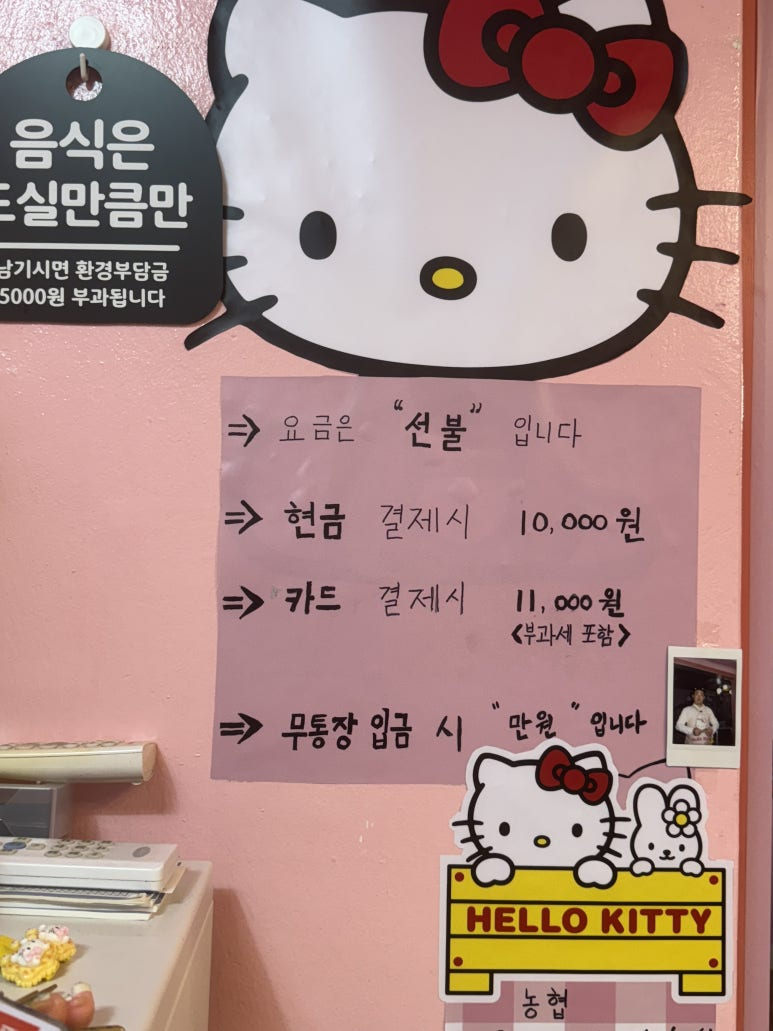 음식은
드실만큼만
남기시면 환경부담금
5000원 부과됩니다
⇒ 요금은 "선불" 입니다
⇒ 현금 결제시 10,000원
⇒ 카드 결제시 11,000원
<부과세 포함>
⇒ 무통장 입금 시 "만원" 입니다
HELLO KITTY
농협